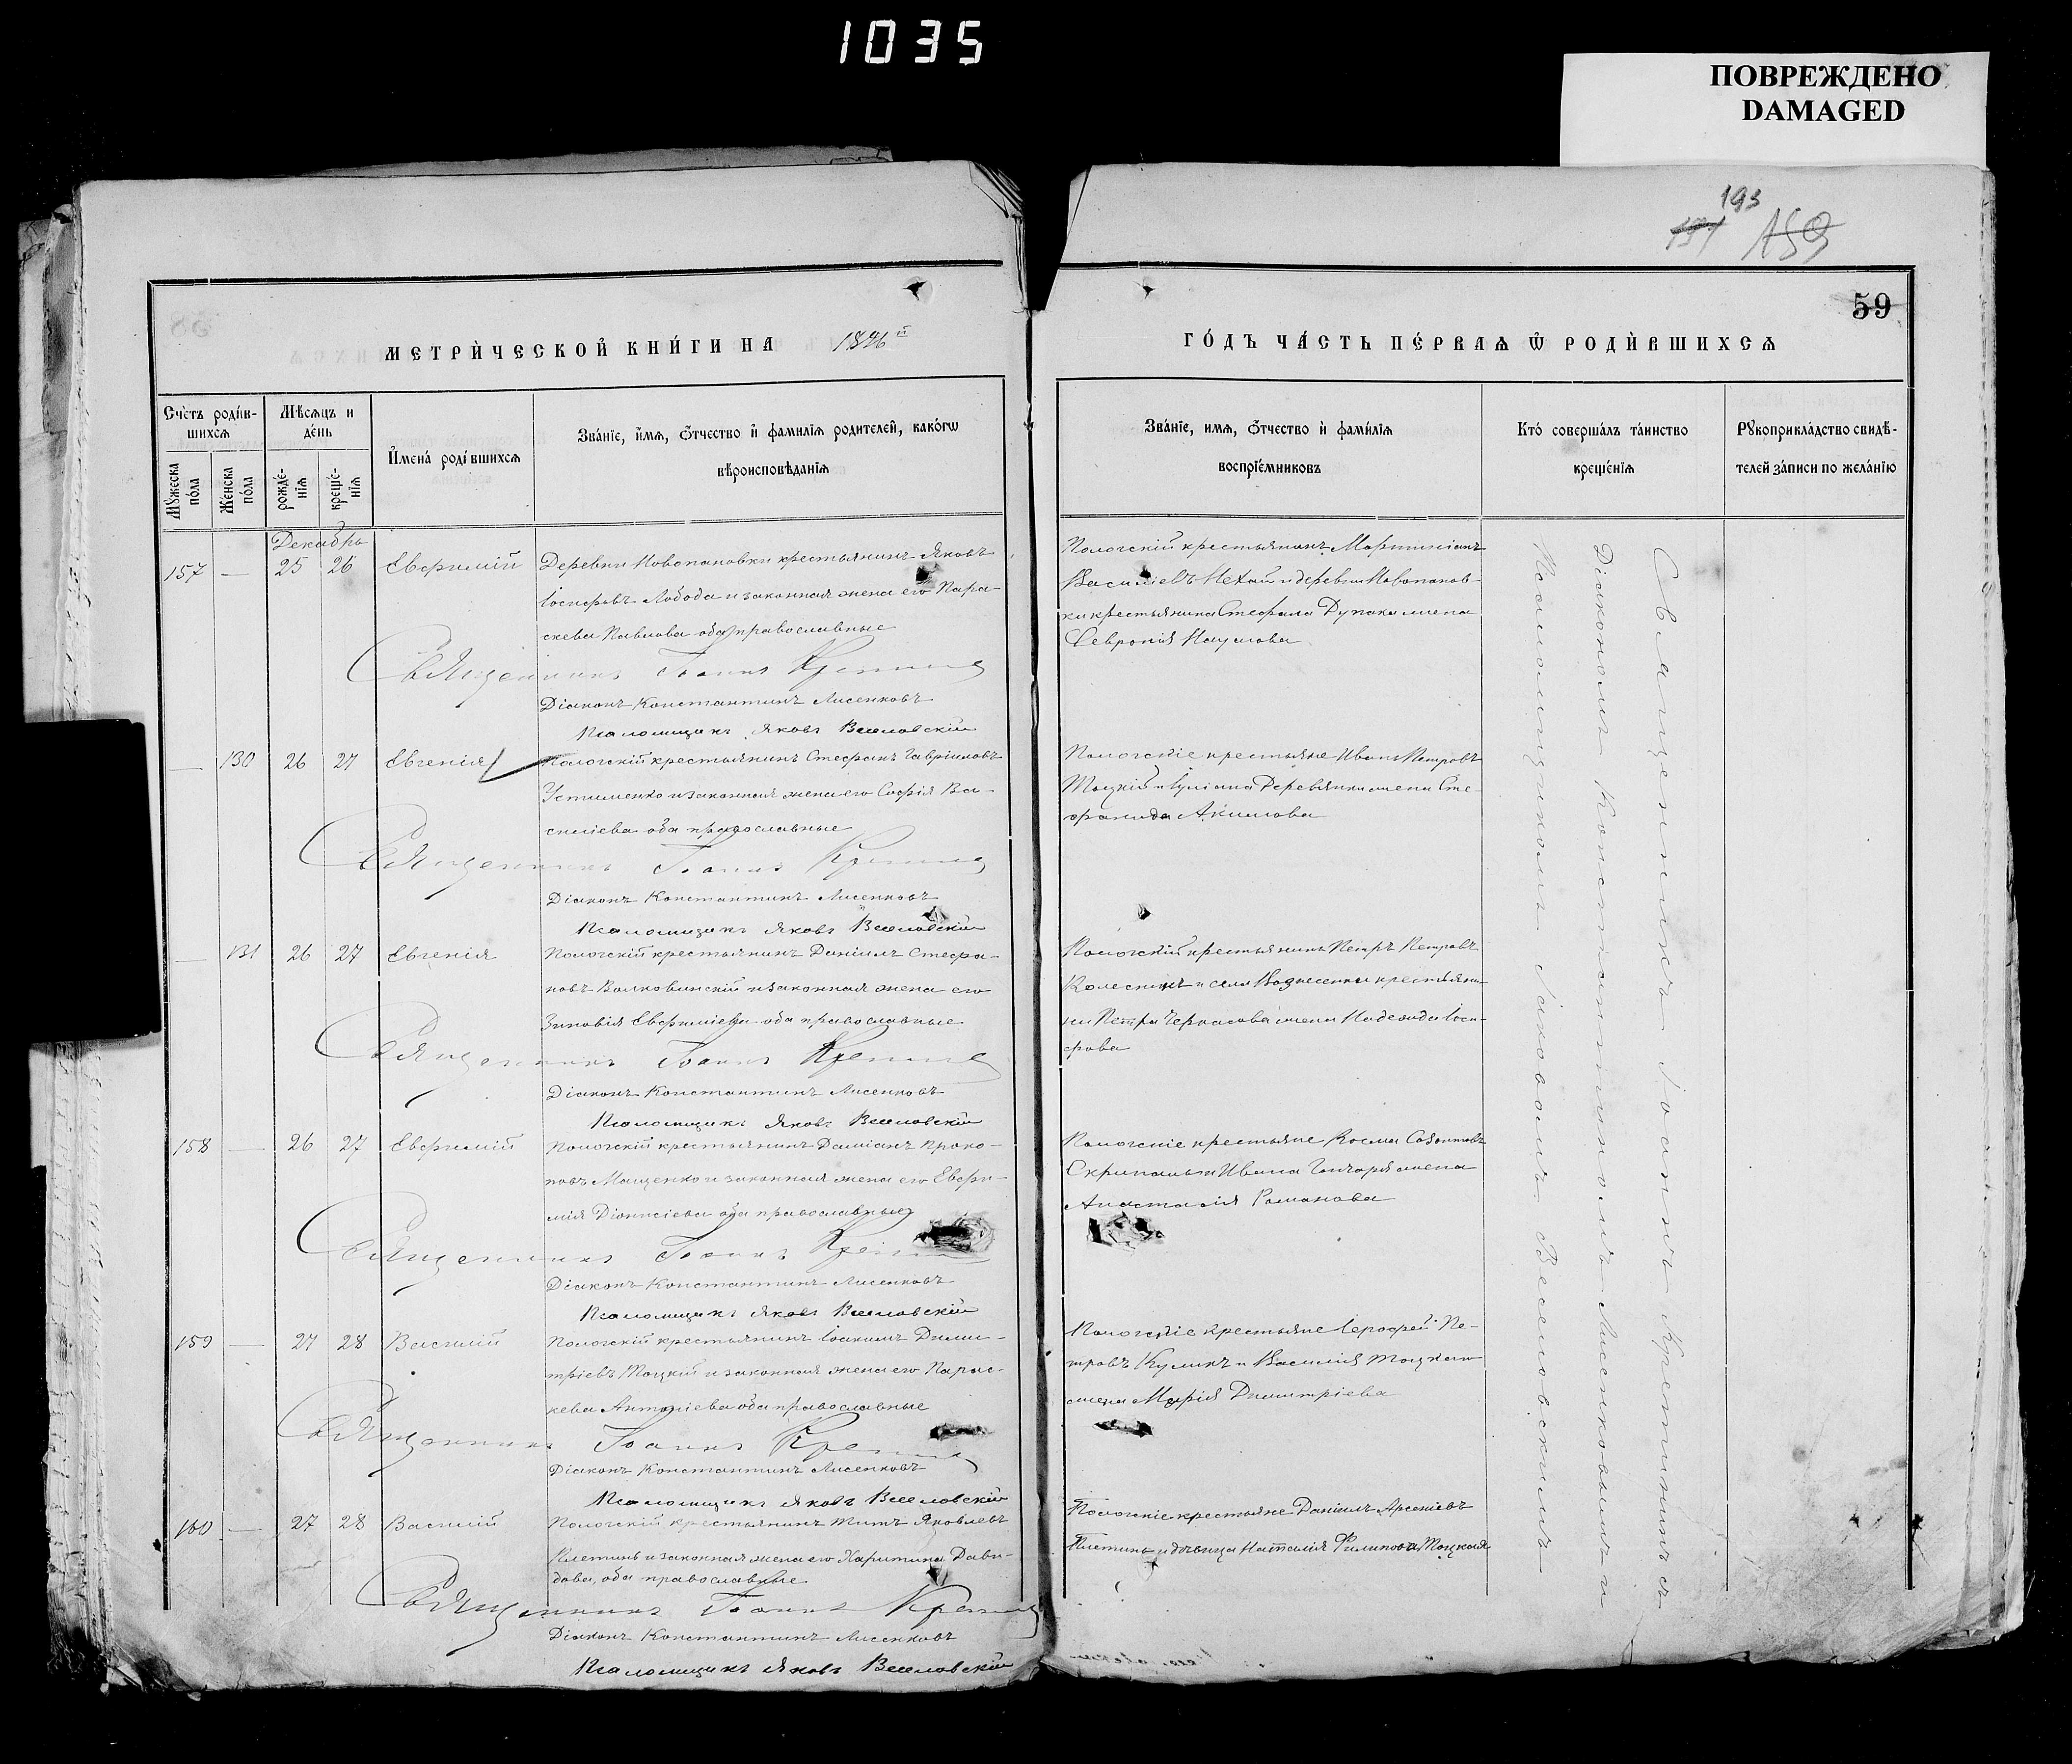 1035
ПОВРЕЖДЕНО
DAMAGED
193
159
59
МЕТРИ́ЧЕСКОЙ КНИ́ГИ НА 1896й
ГО́ДЪ ЧА́СТЬ ПЕ́РВАѦ Ѡ РОДИ́ВШИХСѦ
Сче́тъ роди́в-
шихсѧ
Мѣ́сѧцъ и
де́нь
Мꙋ́жеска
по́ла
Же́нска
по́ла
рожде́-
нїѧ
креще́-
нїѧ
И҆мена́ роди́вшихсѧ
Зва́нїе, и҆́мѧ, ѻ҆́тчество и҆ фамилїѧ родителей, како́гѡ
вѣроисповѣ́данїѧ
Зва́нїе, имѧ, ѻ҆́тчество и҆ фами́лїѧ
воспрїе́мниковъ
Кто́ соверша́лъ та́инство
креще́нїѧ
Рꙋкоприкла́дство свидѣ́-
телей за́писи по жела́нїю
Декабрь
157 — 25 26 Евфимій Деревни Новопановки крестьянинъ Яковъ
Іосифовъ Лобода и законная жена его Пара-
скева Павлова оба православные
Священникъ Іоаннъ
Діаконъ Константинъ Лисенковъ
Псаломщикъ Яковъ Веселовскій
Пологскій крестьянинъ Мартиніанъ
Василіевъ Нехай и деревни Новопанов-
ки крестьянина Стефана Дупака жена
Феvронія Наумова
— 130 26 27 Евгенія Пологскій крестьянинъ Стефанъ Гавріиловъ
Устименко и законная жена его Софія Ва-
силіева оба православные
Священникъ Іоаннъ
Діаконъ Константинъ Лисенковъ
Псаломщикъ Яковъ Веселовскій
Пологскіе крестьяне Иванъ Петровъ
Тоцкій и Іуліана Деревянки жена Сте-
фанида Акимова
— 131 26 27 Евгенія Пологскій крестьянинъ Даніилъ Стефа-
новъ Волковинскій и законная жена его
Зиновія Евфиміева оба православные
Священникъ Іоаннъ
Діаконъ Константинъ Лисенковъ
Псаломщикъ Яковъ Веселовскій
Пологскій крестьянинъ Петръ Петровъ
Колесникъ и села Вознесенки крестьяни-
на Петра Черкасова жена Надежда Іоси-
фова
158 — 26 27 Евфимій Пологскій крестьянинъ Даміанъ Проко-
повъ Мащенко и законная жена его Евфи-
мія Діонисіева оба православные
Священникъ Іоаннъ
Діаконъ Константинъ Лисенковъ
Псаломщикъ Яковъ Веселовскій
Пологскіе крестьяне Косма
Скрипаль и Ивана Гончаря жена
Анастасія Романова
159 — 27 28 Василій Пологскій крестьянинъ Іоакимъ Дими-
тріевъ Тоцкій и законная жена его Парас-
кева Антоніева оба православные
Священникъ Іоаннъ
Діаконъ Константинъ Лисенковъ
Псаломщикъ Яковъ Веселовскій
Пологскіе крестьяне Іерофей Пе-
тровъ Куликъ и Василія Тоцкаго
жена Марія Димитріева
160 — 27 28 Василій Пологскій крестьянинъ Титъ Яковлевъ
Плетинь и законная жена его Харитина Дави-
дова, оба православные
Священникъ Іоаннъ
Діаконъ Константинъ Лисенковъ
Псаломщикъ Яковъ Веселовскій
Пологскіе крестьяне Даніилъ Арсеніевъ
Плетинь и дѣвица Наталія Филипова Тоцкая
Священникъ Іоаннъ съ
Діакономъ Константиномъ Лисенковымъ и
Псаломщикомъ Іаковомъ Веселовскимъ